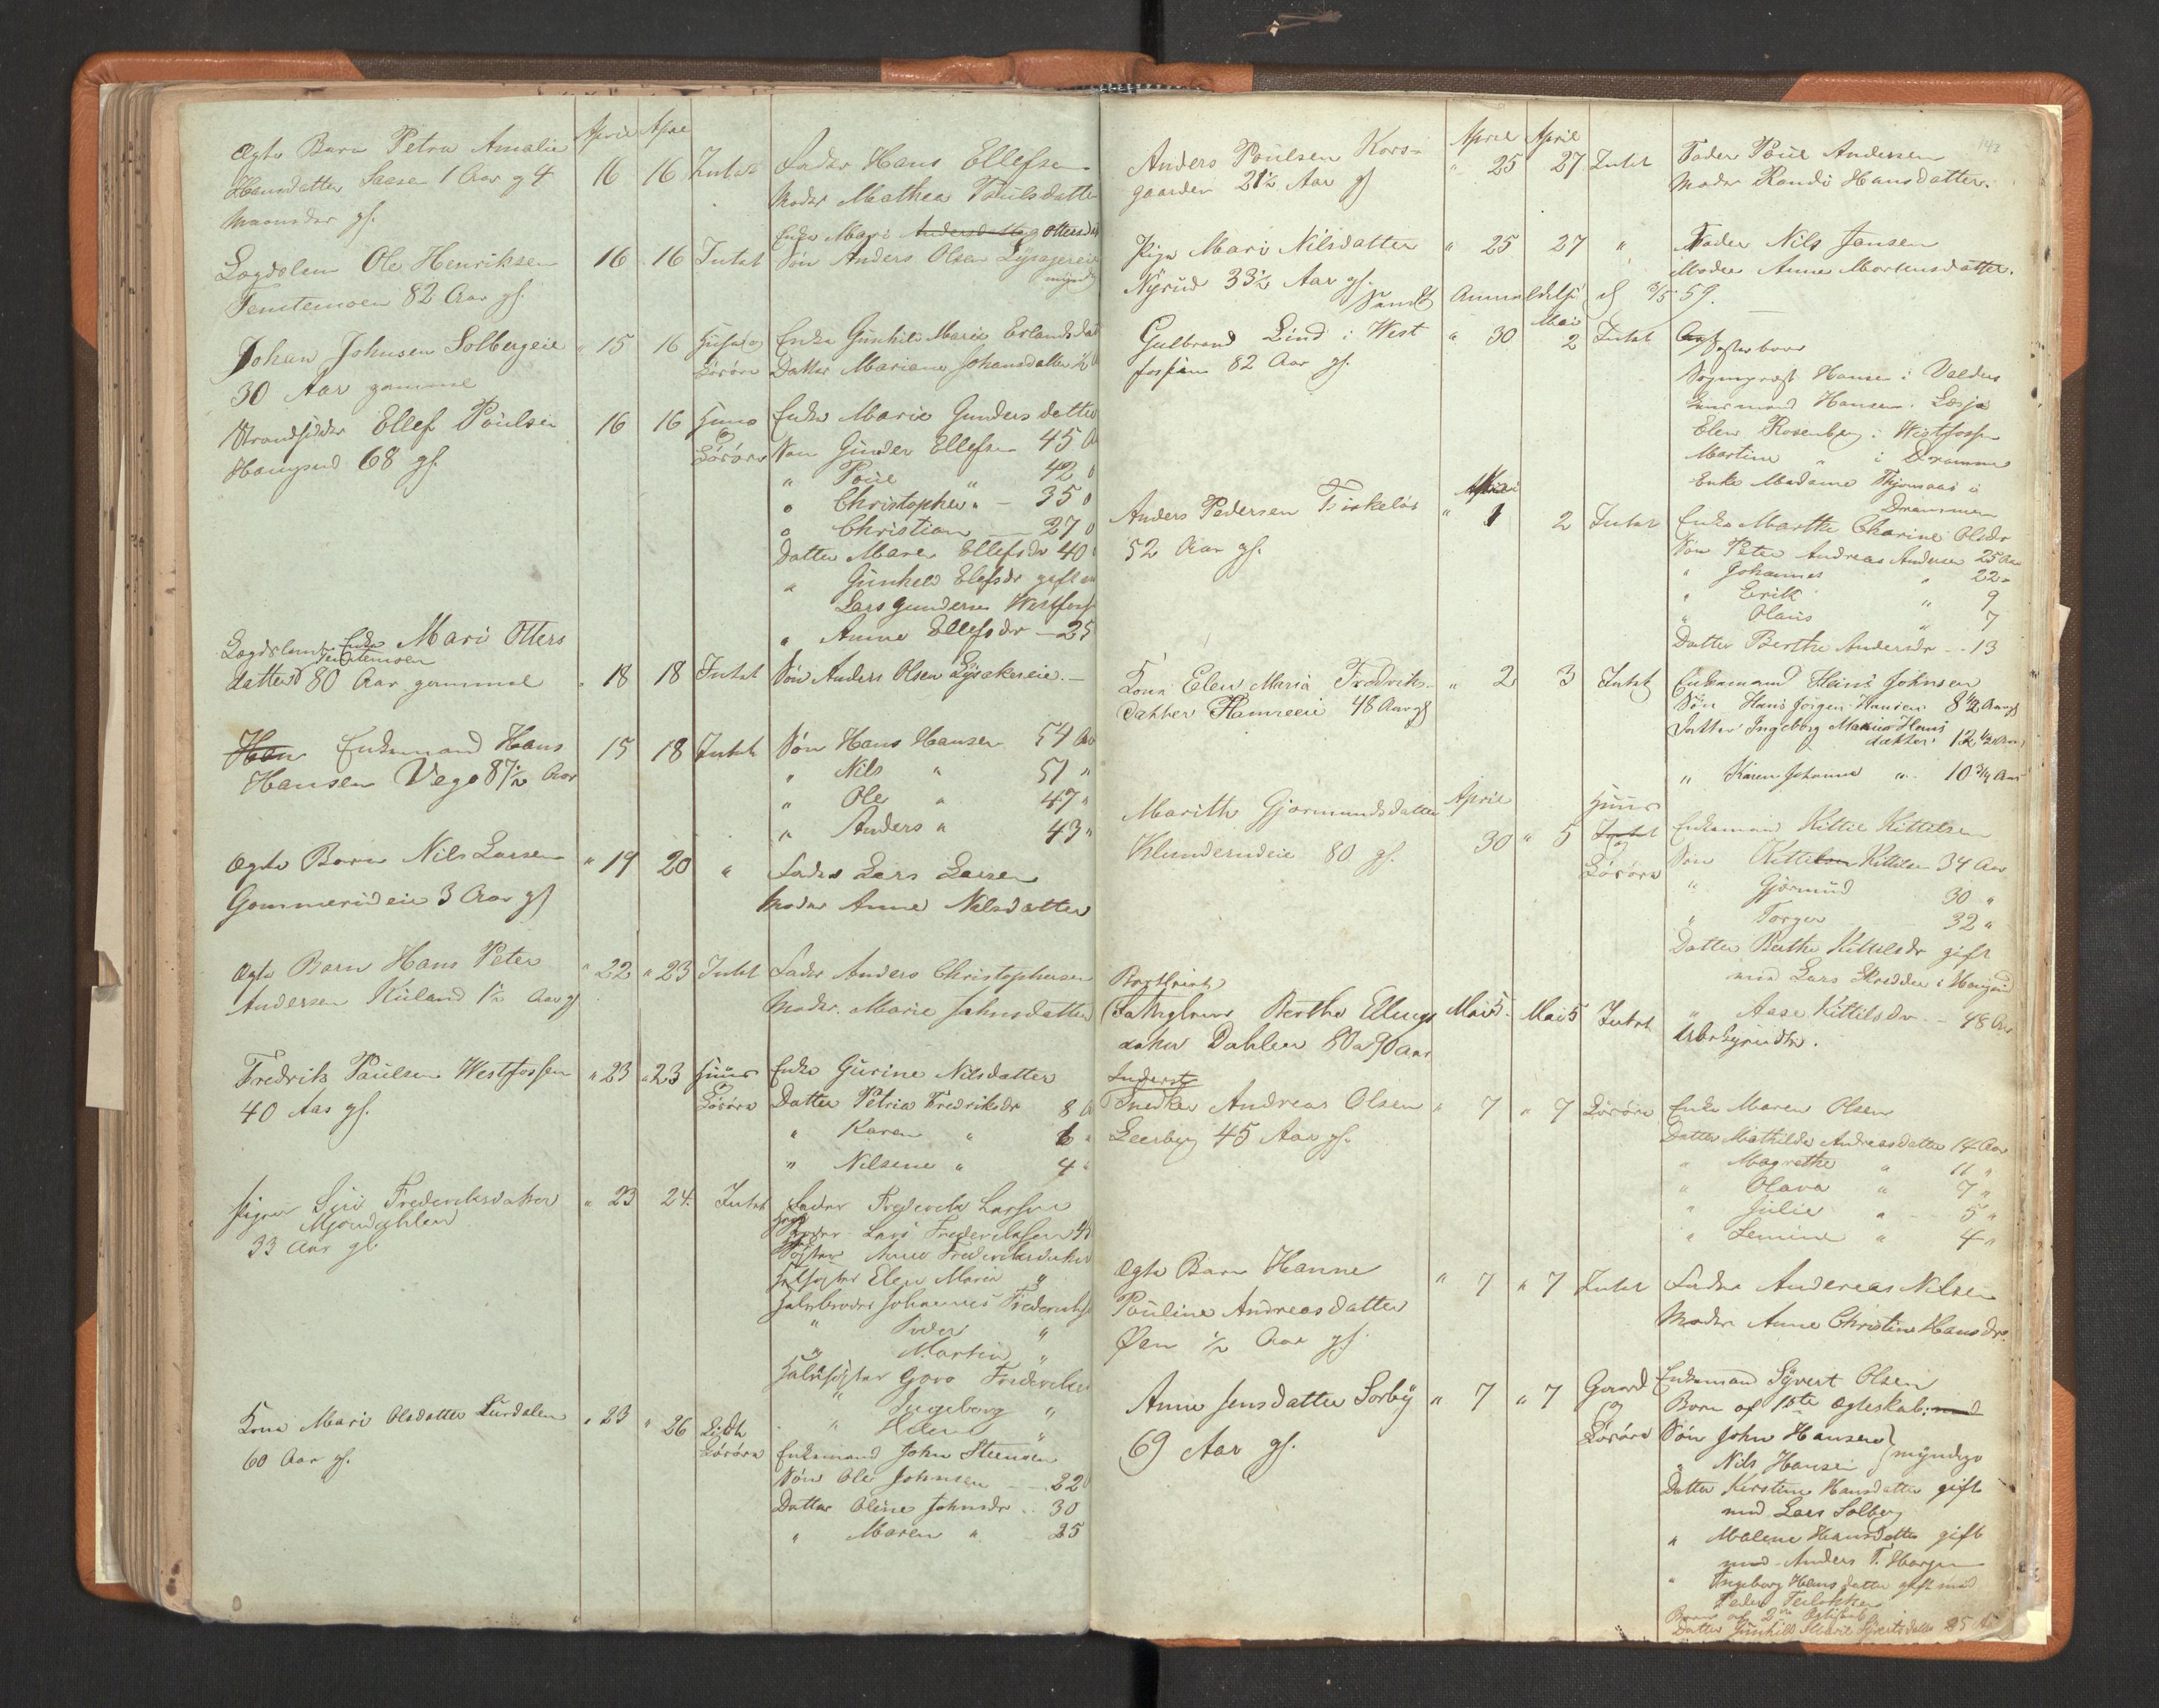 April Apri
Ægte Barn Petra Amalie
Hansdatter Saasen 1 Aar og 4 16 16 Intet Fader Hans Ellefsen
Maaneder gl. Moder Mathea Poulsdatter
Enke Mari Andersdatter Ottersdat
Lægdslem Ole Henriksen 16 16 Intet Søn Anders Olsen
Temtemoen 82 Aar gl. myndig
Johan Johnsen Solbergeie " 15 16 Huus og Enke Gunhild Marie Erlandsdat
30 Aar gammel Løsøre Datter Mariane Johansdatter 1/2
Strandsidder Ellef Poulsen 16 16 Huus Enke Marie Gundersdatter
Hougsund 68 gl. og Løsøre Søn Gunder Ellefsen 45
" Poul " 42
" Christopher " - 35
" Christian 27
Datter Maren Ellefsdr 40
" Gunhild Elefsdr gift m
Lars Gundersen Westfoss
" Anne Ellefsdr - 25
Lægdslem Enke Mari Otters
Temtemoen
datter 80 Aar gammel 18 18 Intet Søn Anders Olsen Lysakereie. -
Han Enkemand Hans 15 18 Intet Søn Hans Hansen 54 Aa
Hansen Vego 87 1/2 Aar " Nils " 51 "
" Ole " 47 "
" Anders " 43 "
Ægte Barn Nils Larsen " 19 20 " Fader Lars Larsen
Gommerudeie 3 Aar gl Moder Anne Nilsdatter
Ægte Barn Hans Peter " 22 " 23 Intet Fader Anders Christophersen
Andersen Ruland 1 1/2 Aar gl Moder Marie Johnsdatter
Fredrik Paulsen Westfossen " 23 " 23 Huus Enke Gurine Nilsdatter
40 Aar gl. og Løsøre Datter Petria Fredriksdr 8
" Karen " 6 "
" Nilsine " 4 "
Pigen Siri Frederiksdatter " 23 24. Intet Fader Frederik Larsen
Mjøndahlen Broder Lars Frederiksen
33 Aar gl. Søster Anne Frederiksdatter
Halvsøster Elen Maria "
Halvbroder Johannes Frederiks
" Peder "
" Martin "
Halvsøster Goro Frederiks
" Ingeborg "
" Helene "
Kone Mari Olsdatter Surdalen " 23 " 26 Lidt Enkemand John Steensen
60 Aar gl. Løsøre Søn Ole Johnsen 32
Datter Oline Johnsdr .. 30
" Maren " 25
142
April April
Anders Poulsen Kors- " 25 27 Intet Fader Poul Andersen
gaarden 21 1/2 Aar gl Moder Randi Hansdatter.
Pige Mari Nilsdatter " 25 27 " Fader Nils Jansen
Nyrud 33 1/2 Aar gl. Moder Anne Mortensdatter.
Sendt Anmeldelse 3/5 59.
Mai
Gulbrand Lind i West " 30 2 Intet Søsterbørn
fossen 82 Aar gl. Sogneprest Hansen i Valders
Lensmand Hansen Lesja
Elen Rosenberg i Westfossen
Martine " i Drammen
Enke Madame i
Drammen
Mai
Anders Pedersen " 1 2 Intet Enke Marthe Charine Olsdr
52 Aar gl. Søn Peter Andreas Andersen 25 Aar
" Johannes " 22 "
" Erik 9
" Olaus " 7
Datter Berthe Andersdr .. 13
Kone Elen Maria Fredrik- " 2 3 Intet Enkemand Hans Johnsen
datter Hamreeie 48 Aar gl Søn Hans Jørgen Hansen 8 1/2 Aar gl
Datter Ingeborg Maria Hans
datter 12 1/2 Aar
" Karen Johanne " 10 3/4 Aar
Marithe Gjermundsdatter April Huus
Klunderudeie 80 gl. 30 " 5 Intet og Enkemand Kittil Kittelsen
Løsøre Søn Kittil Kittilsen 34 Aar
" Gjermund 30 "
" Torger 32 "
Datter Berthe Kittilsdr gift
med Lars Skredder i Hougsund
" Aase Kittilsdr - 48 Aar
Fattiglem Berthe Ellings Mai 5. Mai 5 Intet Ubekjendte.
datter Dahlen 80 a 90 aar
Inderst
Snedker Andreas Olsen " 7 " 7 Løsøre Enke Maren Olsen
Leerberg 45 Aar gl. Datter Mathilde Andreasdatter 14 Aar
" Magrethe " 11 "
" Olava " 7 "
" Julie " 5 "
" Lemine " 4 "
Ægte Barn Hanne " 7 " 7 Intet Fader Andereas Nilsen
Pouline Andreasdatter Moder Anne Christine Hansdr.
Øen 1/2 Aar gl.
Anne Jensdatter Sorby " 7 " 7 Gaard Enkemand Syvert Olsen
69 Aar gl. og Løsøre Børn af 1ste Ægteskab: med
Søn John Hansen } myndige
" Nils Hansen
Datter Kirstine Hansdatter gift
med Lars Solberg
" Malene Hansdatter gift
med Anders T. Horgen
" Ingeborg Hansdatter gift med
Peder
Børn af 2det Ægteskab
Datter Gunhild Marie Syvertsdatter 25 Aar